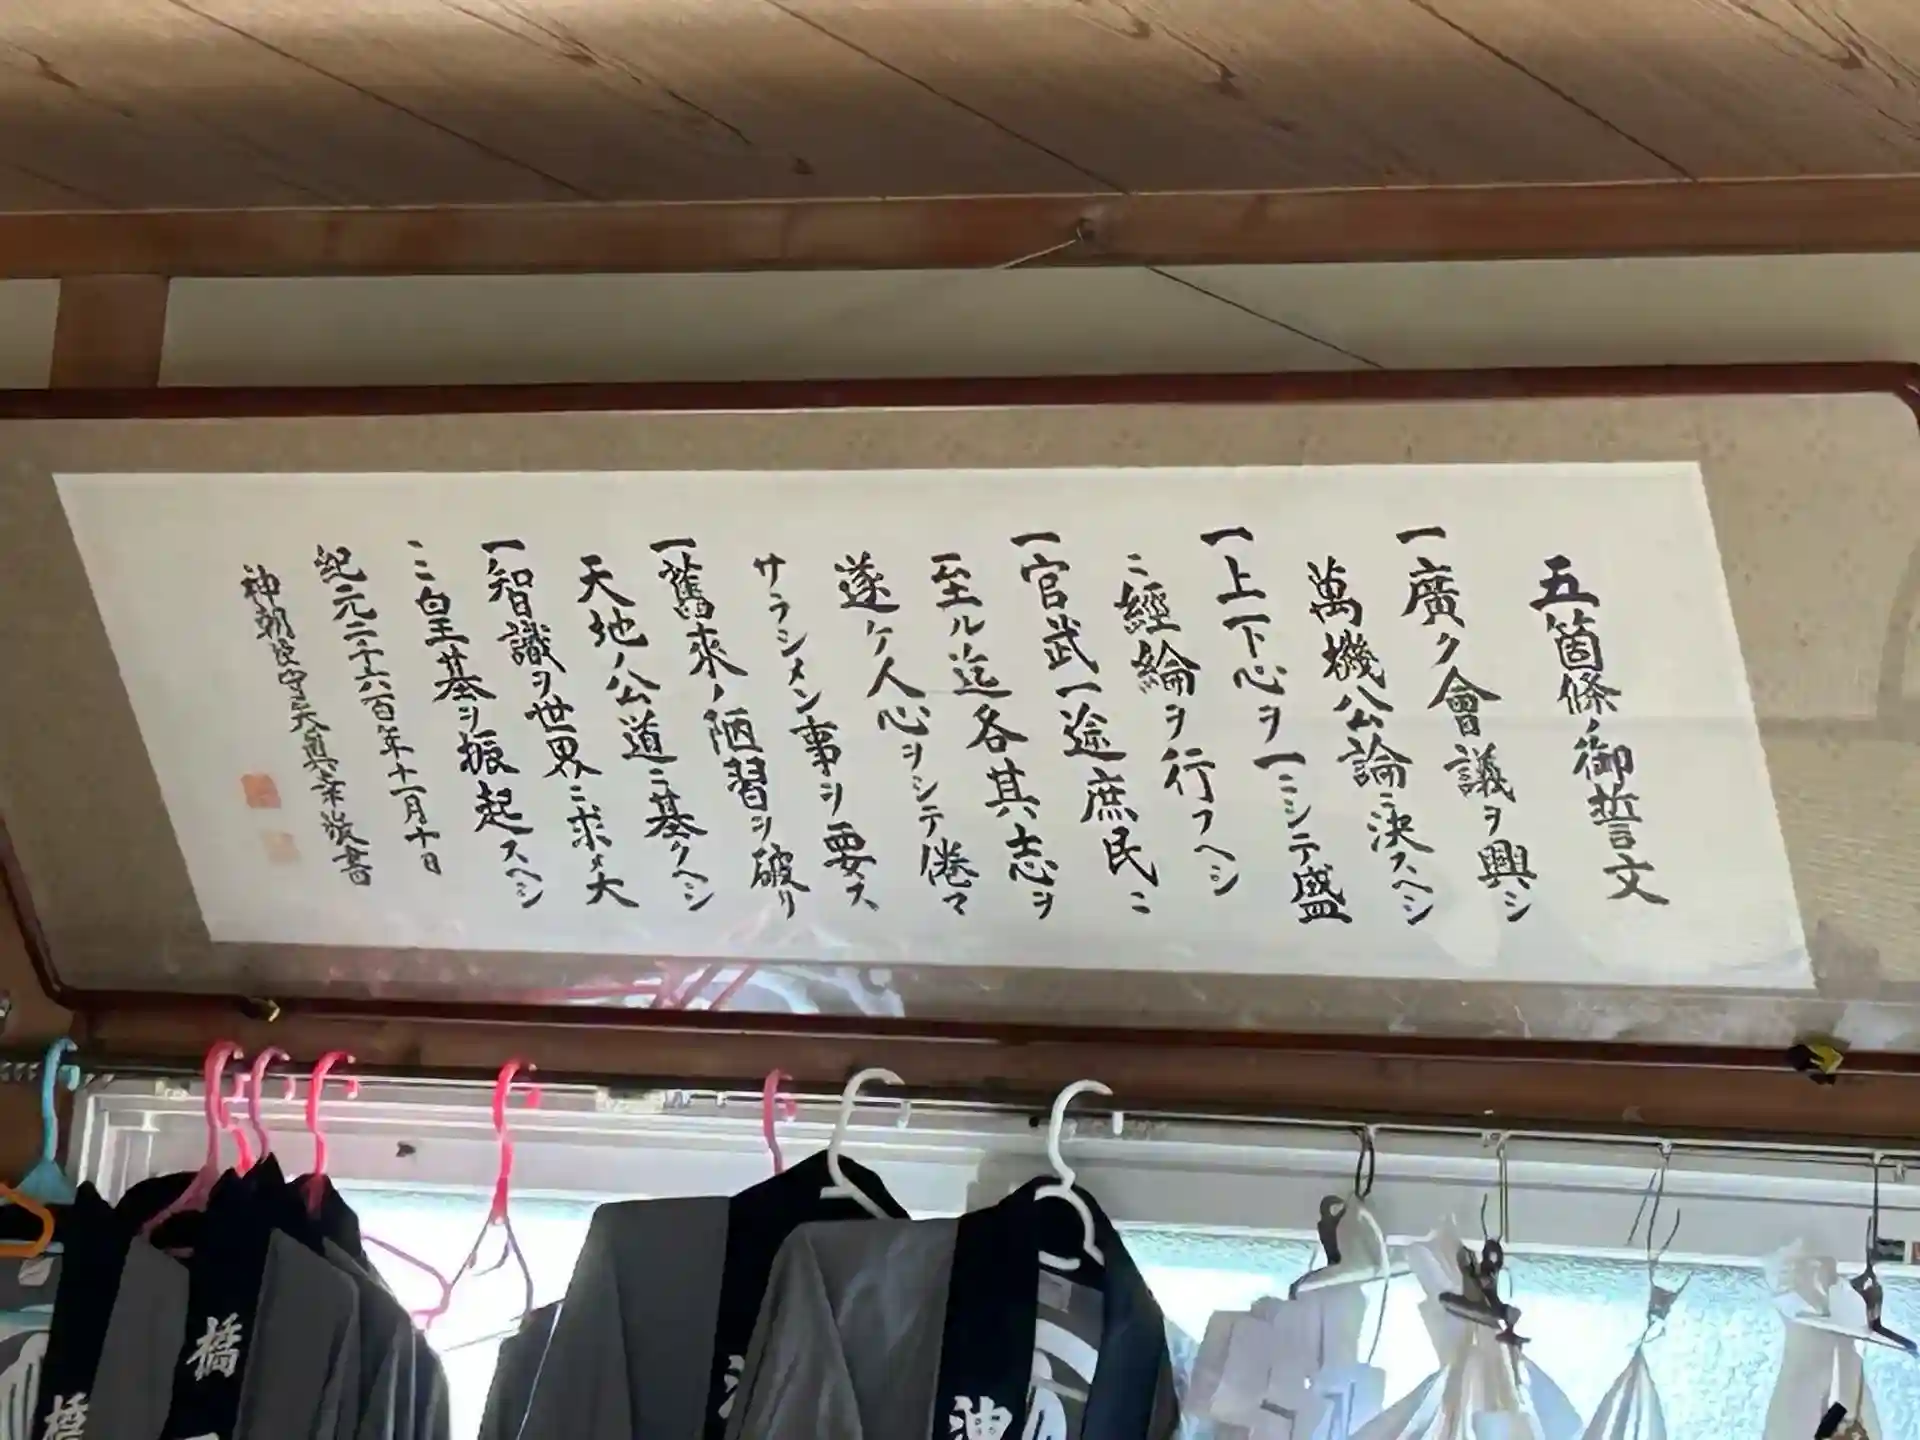 五箇條ノ御誓文
一廣ク會議ヲ興シ
萬機公論ニ決スヘシ
一上下心ヲ一ニシテ盛
ニ經綸ヲ行フヘシ
一官武一途庶民ニ
至ル迄各其志ヲ
遂ケ人心ヲシテ倦マ
サラシメン事ヲ要ス
一舊來ノ陋習ヲ破リ
天地ノ公道ニ基クヘシ
一智識ヲ世界ニ求メ大
ニ皇基ヲ振起スヘシ
紀元二千六百年十一月十日
神朝 守矢真幸 書
橋
橋
沖